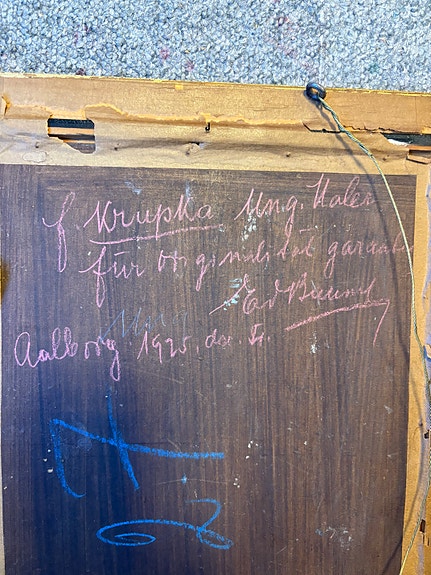 f. Krupka Ung. Maler
für Originalität garant
Ed Brunn
Aalborg 1925. d.